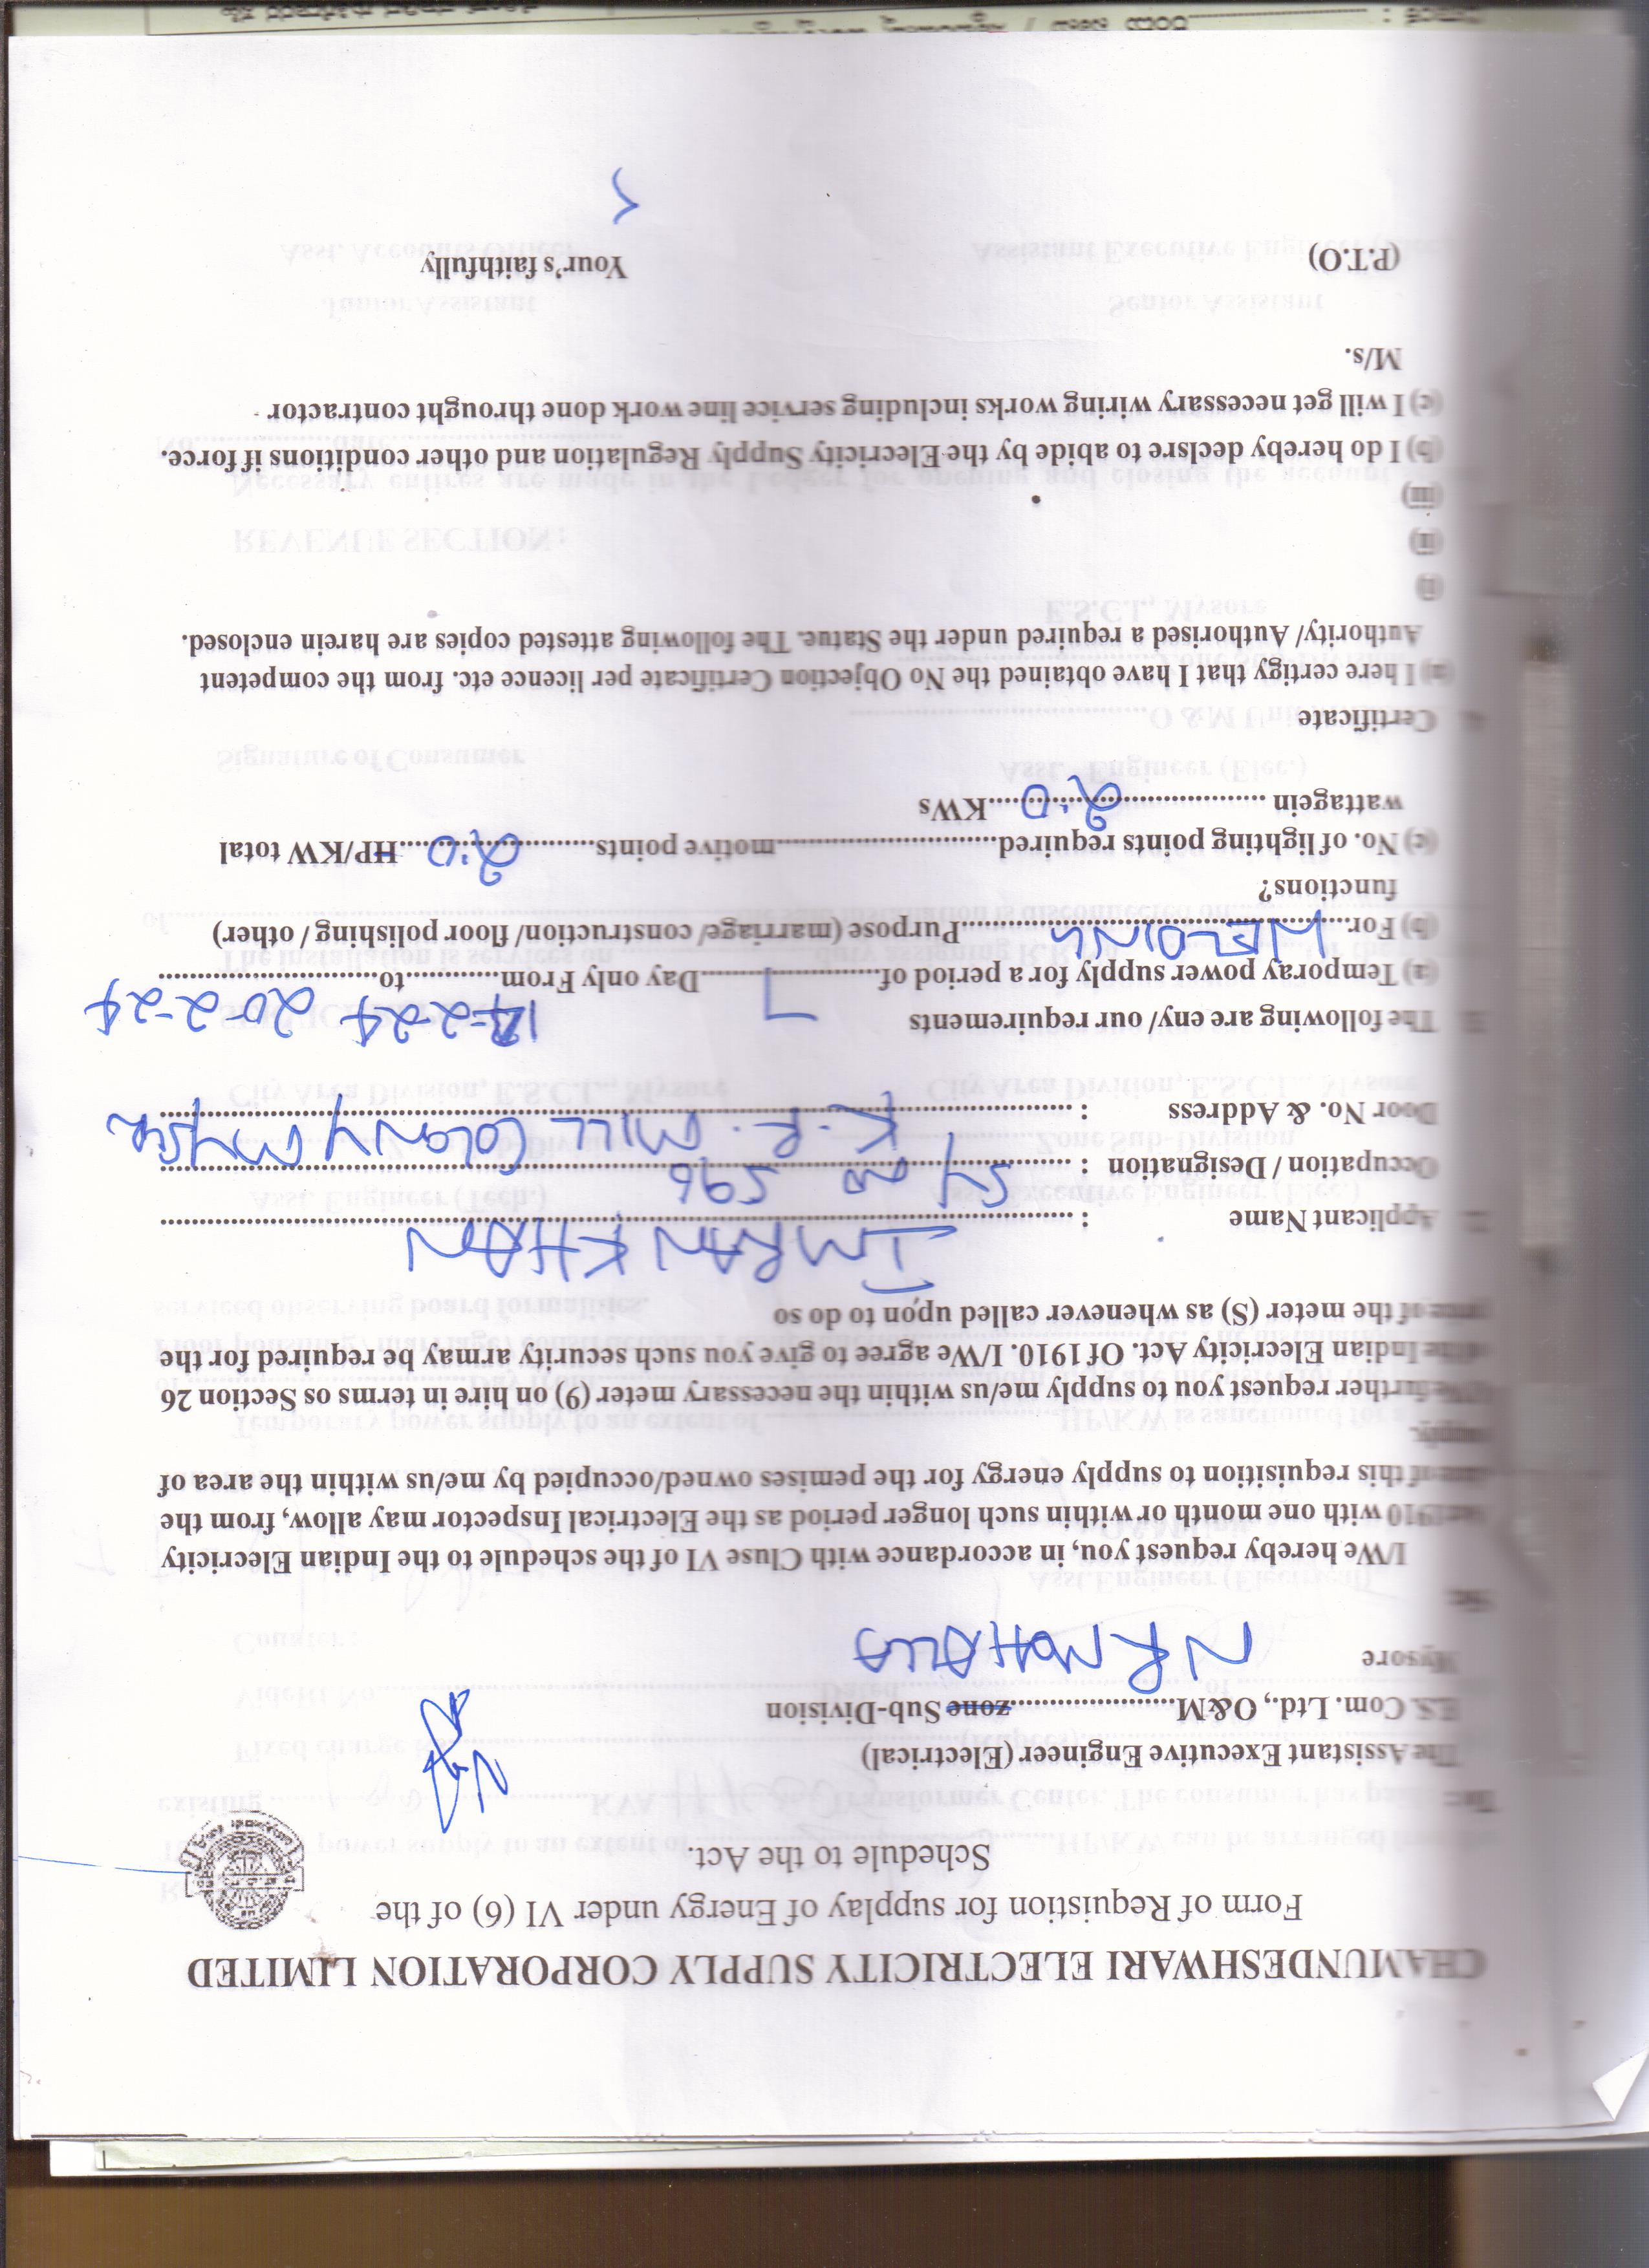 CHAMUNDESHWARI ELECTRICITY SUPPLY CORPORATION LIMITED
Form of Requistion for supplay of Energy under VI (6) of the
Schedule to the Act.
To:
The Assistant Executive Engineer (Electrical)
E.S. Com. Ltd., O&M........................zone Sub-Division
NR MOHALLA
Mysore
Sir,
I/We hereby request you, in accordance with Cluse VI of the schedule to the Indian Elecricity
1910 with one month or within such longer period as the Electrical Inspector may allow, from the
of this requisition to supply energy for the pemises owned/occupied by me/us within the area of
supply.
further request you to supply me/us within the necessary meter (9) on hire in terms os Section 26
of the Indian Elecricity Act. Of 1910. I/We agree to give you such security armay be required for the
price of the meter (S) as whenever called upon to do so
Applicant Name : IMRAN KHAN
Occupation / Designation : Sy no 596
Door No. & Address : K.R. MILL COLONY MYSORE
The following are eny/ our requirements
(a) Temporay power supply for a period of 7 Day only From 14-2-24 to 20-2-24
(b) For WELDING Purpose (marriage/ construction/ floor polishing / other)
functions?
(c) No. of lighting points required..............................motive points 2.0 HP/KW total
wattagein 2.0 KWs
Certificate
(a) I here certigy that I have obtained the No Objection Certificate per licence etc. from the competent
Authority/ Authorised a required under the Statue. The following attested copies are harein enclosed.
(i)
(ii)
(iii)
(b) I do hereby declsre to abide by the Elecricity Supply Regulation and other conditions if force.
(c) I will get necessary wiring works including service line work done throught contractor
M/s.
(P.T.O) Your's faithfully